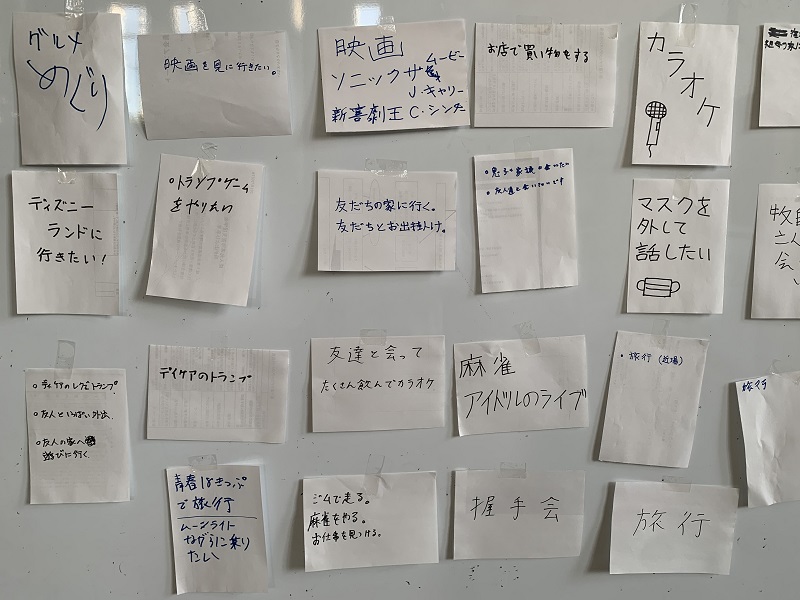 グルメ
めぐり
映画を見に行きたい。
映画
ムービー
ソニックザ
J・キャリー
新喜劇王 C・シンチー
お店で買い物をする
カラオケ
ディズニー
ランドに
行きたい!
○トランプゲーム
をやりたい
友だちの家に行く。
友だちとお出掛け。
・息子家族
・友人達と会いたいです
マスクを
外して
話したい
会
○デイケアのレクでトランプ。
○友人といっぱい外出。
○友人の家へ
遊びに行く。
デイケアのトランプ
友達と会って
たくさん飲んでカラオケ
麻雀
アイドルのライブ
・旅行(近場)
旅行
青春18きっぷ
で旅行
ムーンライト
ながらに乗り
たい
ジムで走る。
麻雀をやる。
お仕事を見つける。
握手会
旅行